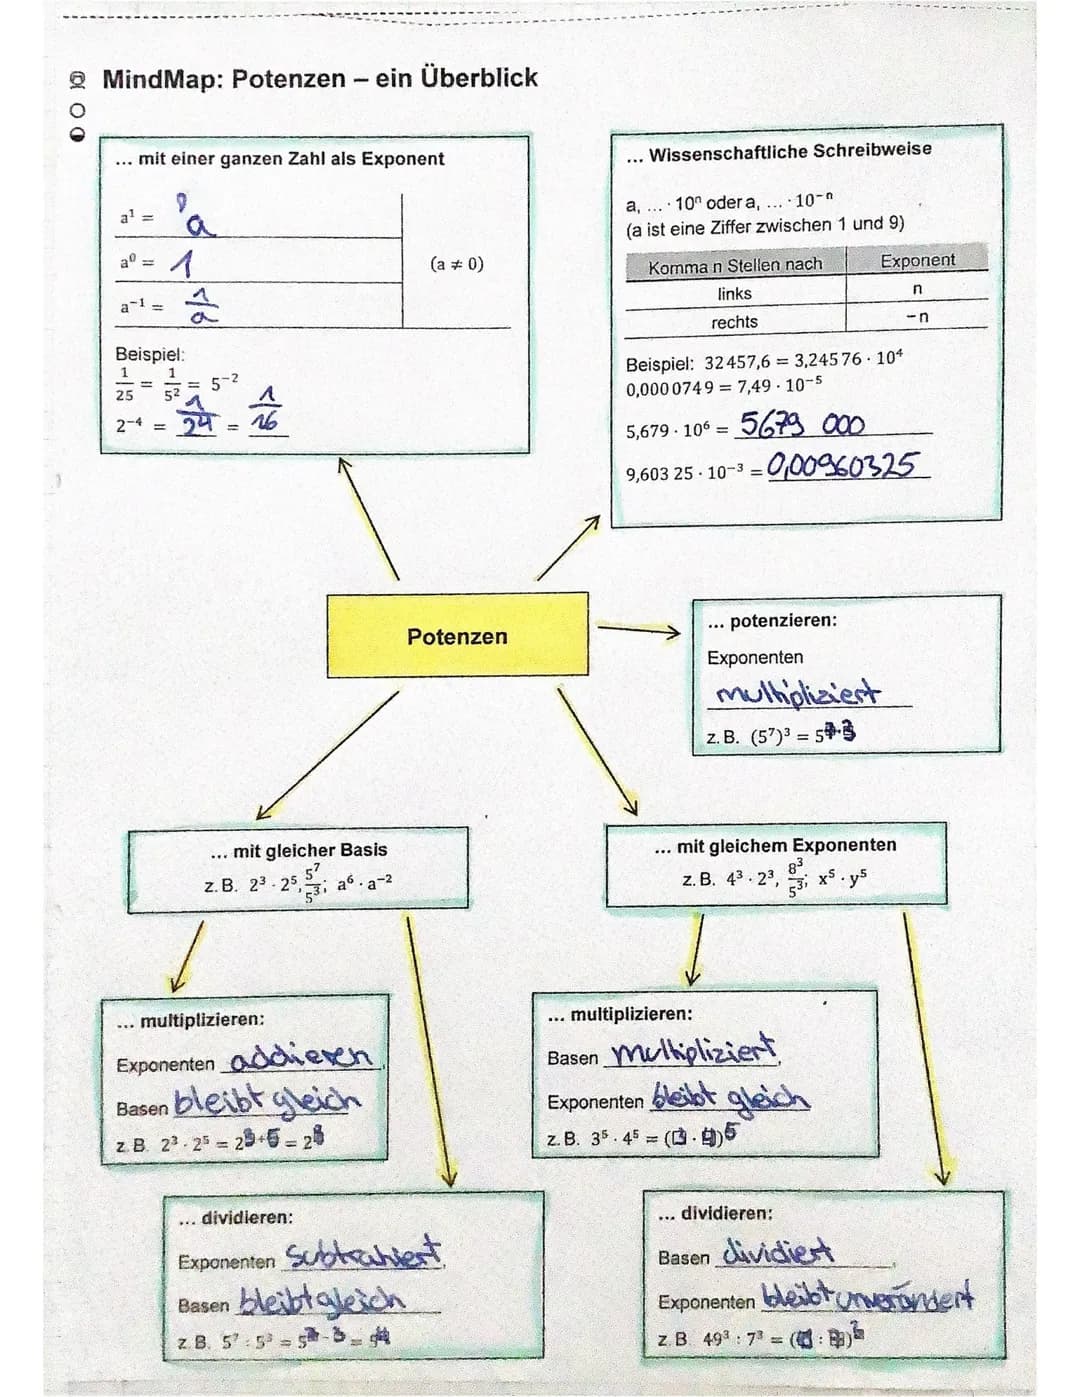 MindMap: Potenzen – ein Überblick
... mit einer ganzen Zahl als Exponent
a¹ = a
a⁰ = 1
(a ≠ 0)
a⁻¹ = 1/a
Beispiel:
1/25 = 1/5² = 5⁻²
2⁻⁴ = 1/24 = 1/16
... Wissenschaftliche Schreibweise
a, ... · 10ⁿ oder a, ... · 10⁻ⁿ
(a ist eine Ziffer zwischen 1 und 9)
Komma n Stellen nach Exponent
links n
rechts −n
Beispiel: 32 457,6 = 3,245 76 · 10⁴
0,000 0749 = 7,49 · 10⁻⁵
5,679 · 10⁶ = 5679 000
9,603 25 · 10⁻³ = 0,00960325
Potenzen
... potenzieren:
Exponenten
multipliziert
z. B. (5⁷)³ = 5⁷·³
... mit gleicher Basis
z. B. 2³ · 2⁵, 5⁷/5³; a⁶ · a⁻²
... mit gleichem Exponenten
z. B. 4³ · 2³, 8³/5³; x⁵ · y⁵
... multiplizieren:
Exponenten addieren,
Basen bleibt gleich
z. B. 2³ · 2⁵ = 2³⁺⁵ = 2⁸
... multiplizieren:
Basen multipliziert,
Exponenten bleibt gleich
z. B. 3⁵ · 4⁵ = (3 · 4)⁵
... dividieren:
Exponenten Subtrahiert,
Basen bleibt gleich
z. B. 5⁷ : 5³ = 5⁷⁻³ = 5⁴
... dividieren:
Basen dividiert,
Exponenten bleibt unverändert
z. B. 49³ : 7³ = ( : )³